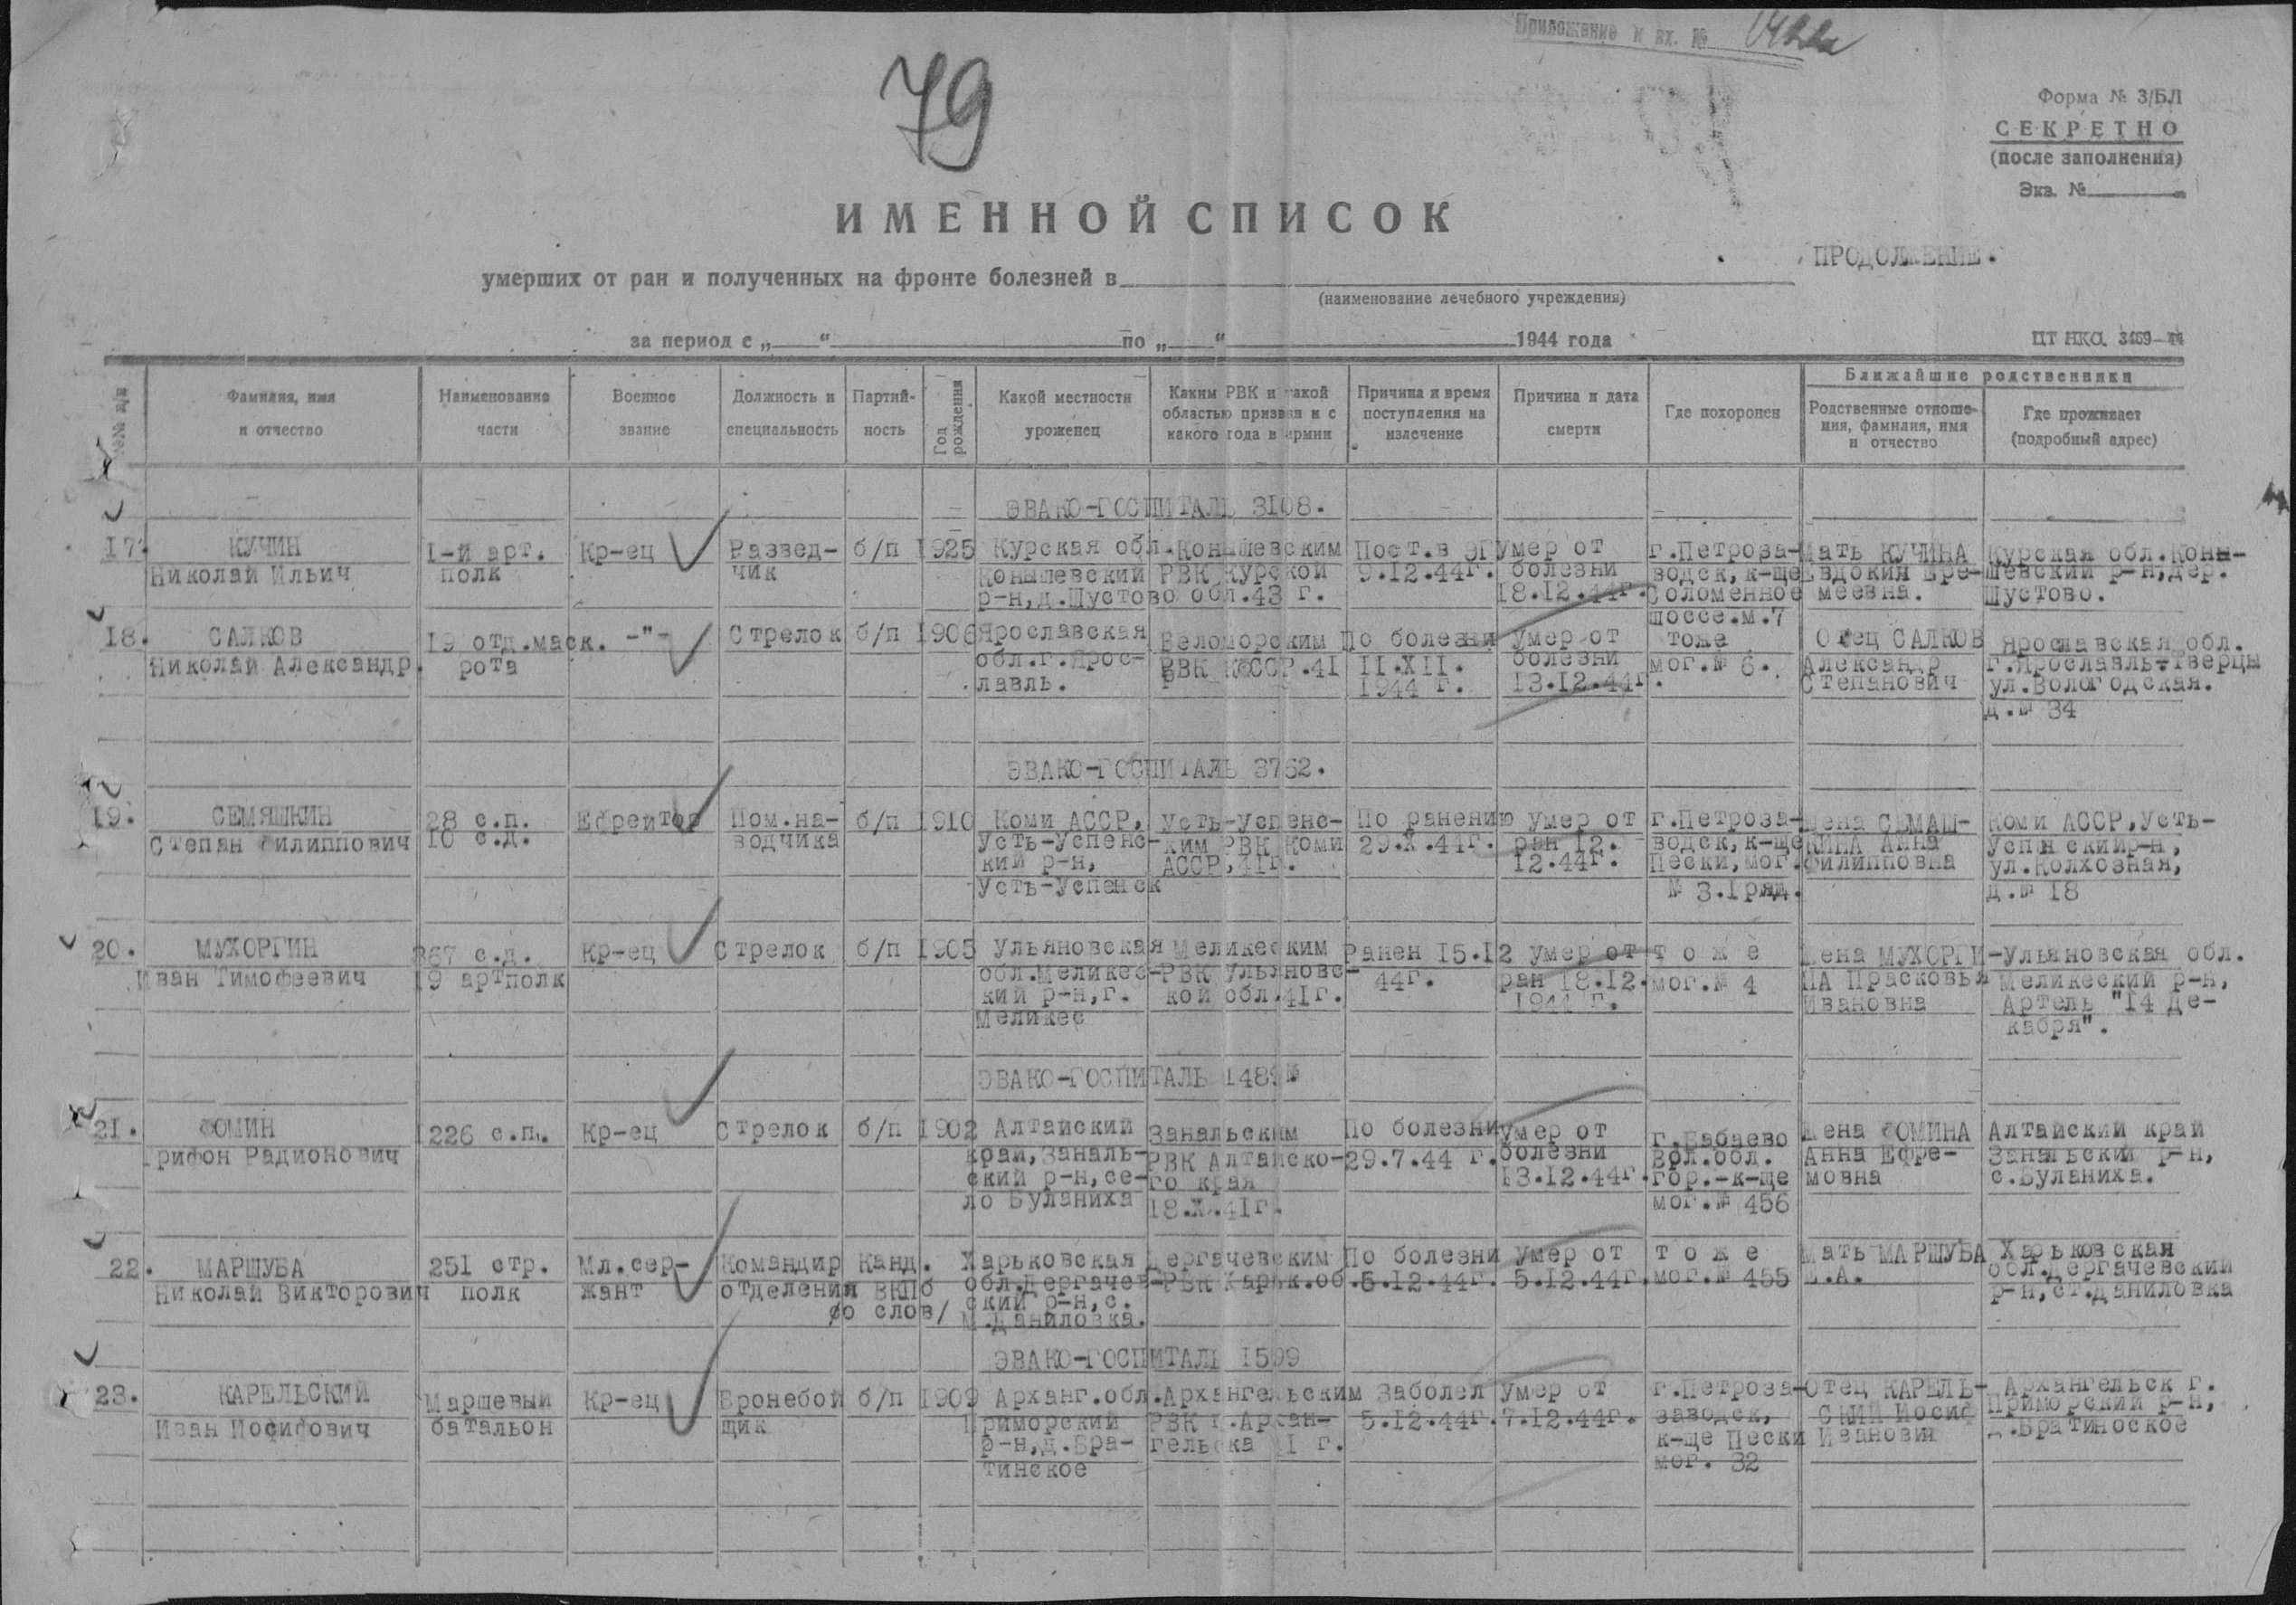 Приложение к вх. №
79
Форма № 3/БЛ
СЕКРЕТНО
(после заполнения)
Экз. №
ИМЕННОЙ СПИСОК
ПРОДОЛЖЕНИЕ.
умерших от ран и полученных на фронте болезней в
(наименование лечебного учреждения)
за период с „ “ по „ “ 1944 года
ЦТ НКО. 3469—44
№№ п/п
Фамилия, имя
и отчество
Наименование
части
Военное
звание
Должность и
специальность
Партий-
ность
Год
рождения
Какой местности
уроженец
Каким РВК и какой
областью призван и с
какого года в армии
Причина и время
поступления на
излечение
Причина и дата
смерти
Где похоронен
Ближайшие родственники
Родственные отноше-
ния, фамилия, имя
и отчество
Где проживает
(подробный адрес)
ЭВАКО-ГОСПИТАЛЬ 3108.
17.
КУЧИН
Николай Ильич
1-й арт.
полк
Кр-ец
Развед-
чик
б/п
1925
Курская обл.
Конышевский
р-н,д.Шустово
Конышевским
РВК Курской
обл.43 г.
Пост.в ЭГ
9.12.44г.
Умер от
болезни
18.12.44г.
г.Петроза-
водск,к-ще
Соломенное
шоссе.м.7
Мать КУЧИНА
Евдокия Ере-
меевна.
Курская обл.Коны-
шевский р-н,дер.
Шустово.
18.
САЛКОВ
Николай Александр.
19 отд.маск.
рота
-"-
Стрелок
б/п
1906
Ярославская
обл.г.Ярос-
лавль.
Беломорским
РВК КФССР.41
г
По болезни
II.XII.
1944 г.
умер от
болезни
13.12.44г.
тоже
мог.№ 6.
Отец САЛКОВ
Александр
Степанович
Ярославская обл.
г.Ярославль-Тверцы
ул.Вологодская.
д.№ 34
ЭВАКО-ГОСПИТАЛЬ 3762.
19.
СЕМЯШКИН
Степан Филиппович
28 с.п.
10 с.д.
Ефрейтор
Пом.на-
водчика
б/п
1910
Коми АССР,
Усть-Успенс-
кий р-н,
Усть-Успенск
Усть-Успенс-
ким РВК Коми
АССР,41г.
По ранению
29.X.44г.
умер от
ран 12.
12.44г.
г.Петроза-
водск,к-ще
Пески,мог.
№ 3.1ряд.
Жена СЕМАШ-
КИНА Анна
Филипповна
Коми АССР,Усть-
Успнскийр-н,
ул.Колхозная,
д.№ 18
20.
МУХОРГИН
Иван Тимофеевич
367 с.д.
19 артполк
Кр-ец
Стрелок
б/п
1905
Ульяновская
обл.Меликес-
кий р-н,г.
Меликес
Меликеским
РВК Ульяновс-
кой обл.41г.
Ранен 15.12
44г.
умер от
ран 18.12.
1944 г.
тоже
мог.№ 4
Жена МУХОРГИ-
НА Прасковья
Ивановна
Ульяновская обл.
Меликеский р-н,
Артель "14 Де-
кабря".
ЭВАКО-ГОСПИТАЛЬ 1489
21.
ФОМИН
Трифон Радионович
1226 с.п.
Кр-ец
Стрелок
б/п
1902
Алтайский
край,Заналь-
ский р-н,се-
ло Буланиха
Занальским
РВК Алтайско-
го края
18.X.41г.
По болезни
29.7.44 г.
умер от
болезни
13.12.44г.
г.Бабаево
Вол.обл.
гор.-к-ще
мог.№ 456
Жена ФОМИНА
Анна Ефре-
мовна
Алтайский край
Занальский р-н,
с.Буланиха.
22.
МАРШУБА
Николай Викторович
251 стр.
полк
Мл.сер-
жант
Командир
отделения
Канд.
ВКПб
/со слов/
Харьковская
обл.Дергачев-
ский р-н,с.
М.Даниловка.
Дергачевским
РВК Харьк.об.
По болезни
5.12.44г.
умер от
5.12.44г.
тоже
мог.№ 455
Мать МАРШУБА
Е.А.
Харьковская
обл.Дергачевский
р-н,ст.Даниловка
ЭВАКО-ГОСПИТАЛЬ 1599
23.
КАРЕЛЬСКИЙ
Иван Иосифович
Маршевый
батальон
Кр-ец
Бронебой
щик
б/п
1909
Арханг.обл.
Приморский
р-н,д.Бра-
тинское
Архангельским
РВК г.Архан-
гельска 41 г.
Заболел
5.12.44г.
Умер от
7.12.44г.
г.Петроза-
заводск,
к-ще Пески
мог. 32
Отец КАРЕЛЬ-
СКИЙ Иосиф
Иванович
Архангельск г.
Приморский р-н,
д.Братиноское